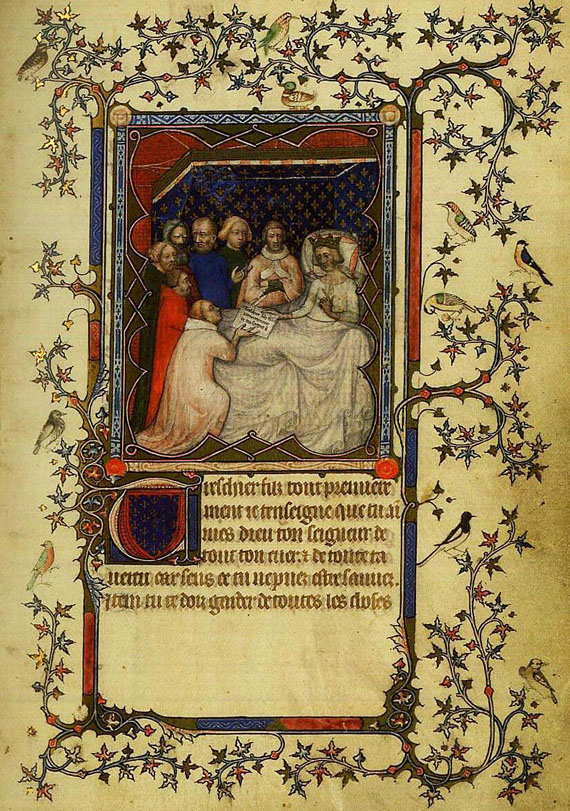 Treschier filz tout premiere
ment ie tenseigne que tu ai
mes dieu ton seigneur de
tout ton cuer & de toute ta
uertu car sens ce tu ne puez estre sauuez.
Item tu te doiz garder de toutes les choses